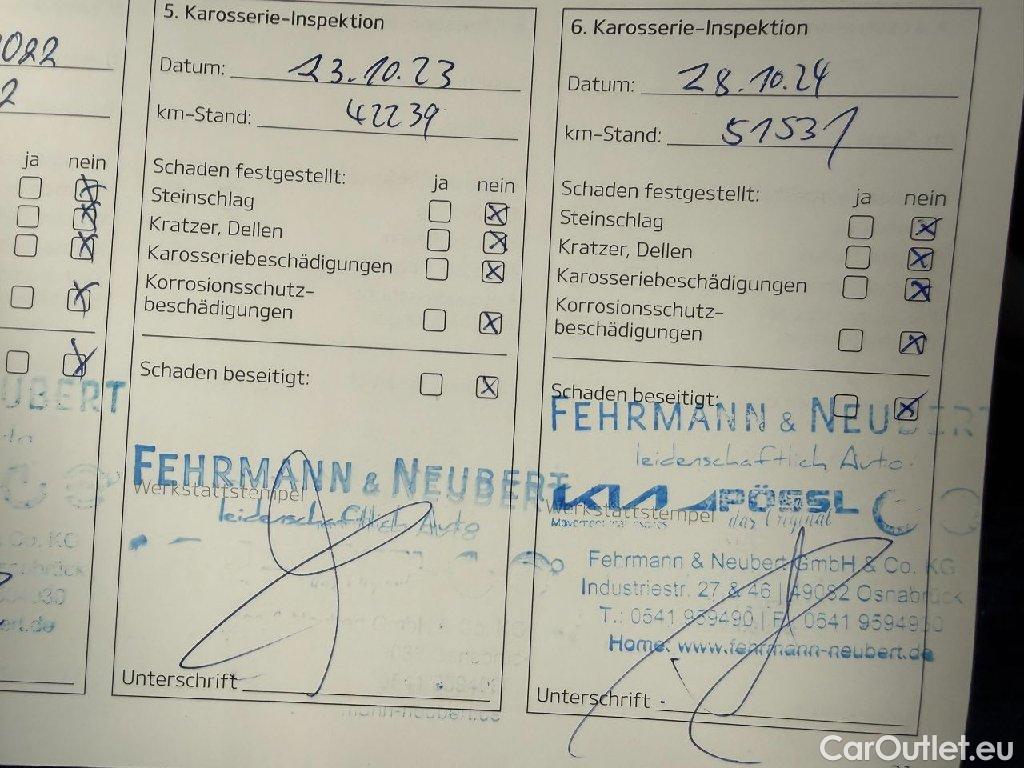 2022
2
ja nein
UBERT
Co. KG
5. Karosserie-Inspektion
Datum: 23.10.23
km-Stand: 42239
Schaden festgestellt: ja nein
Steinschlag
Kratzer, Dellen
Karosseriebeschädigungen
Korrosionsschutz-
beschädigungen
Schaden beseitigt:
FEHRMANN & NEUBERT
Werkstattstempel
leidenschaftlich Auto
Unterschrift
6. Karosserie-Inspektion
Datum: 28.10.24
km-Stand: 51531
Schaden festgestellt: ja nein
Steinschlag
Kratzer, Dellen
Karosseriebeschädigungen
Korrosionsschutz-
beschädigungen
Schaden beseitigt:
FEHRMANN & NEUBERT
leidenschaftlich Auto.
KIA PÖSSL
Werkstattstempel das Original
Fehrmann & Neubert GmbH & Co. KG
Industriestr. 27 & 46 | 49082 Osnabrück
T.: 0541 959490 | F.: 0541 9594930
Home: www.fehrmann-neubert.de
Unterschrift
CarOutlet.eu